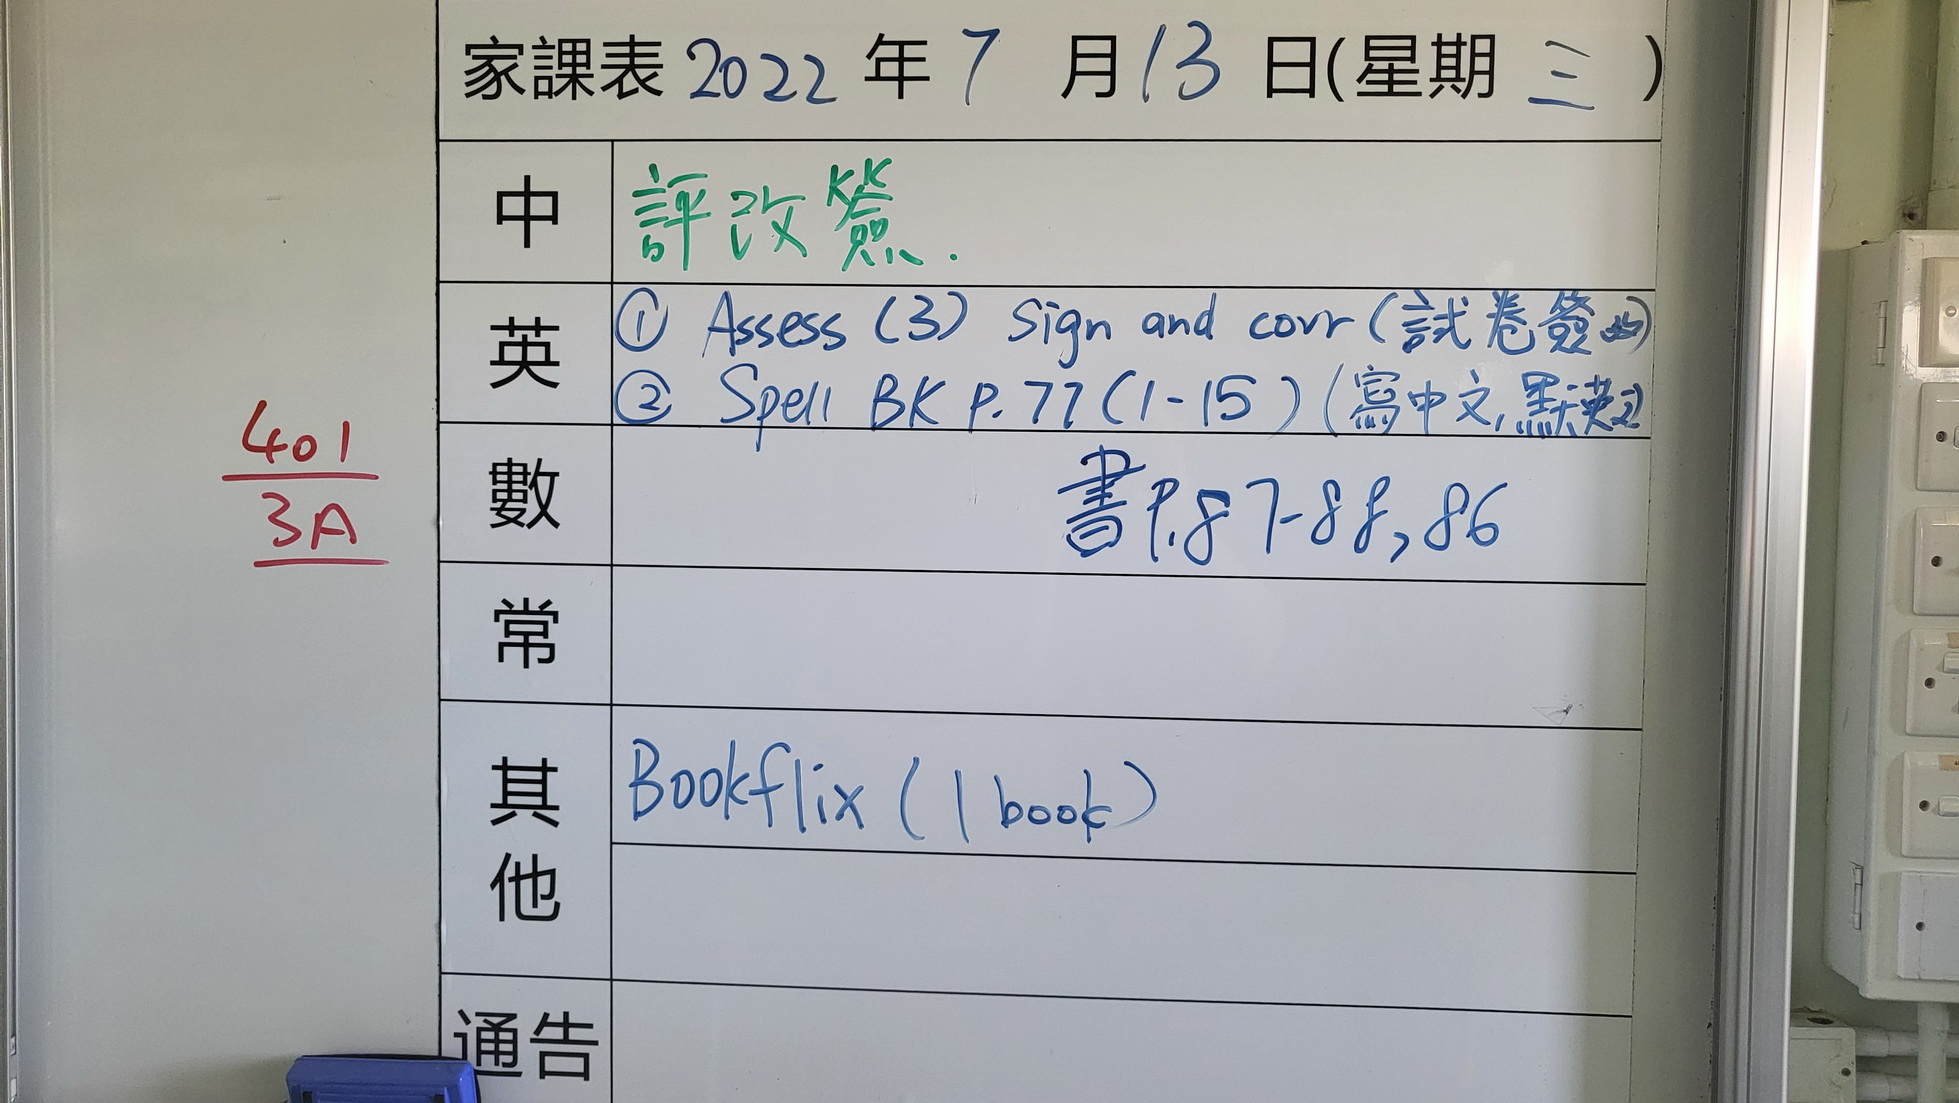 家課表 2022 年 7 月 13 日(星期 三 )
中 評改簽.
英 ① Assess (3) sign and corr (試卷簽
② Spell BK P.77 (1-15) (寫中文,默英文)
401
3A
數 書P.87-88,86
常
其他 Bookflix (1 book)
通告